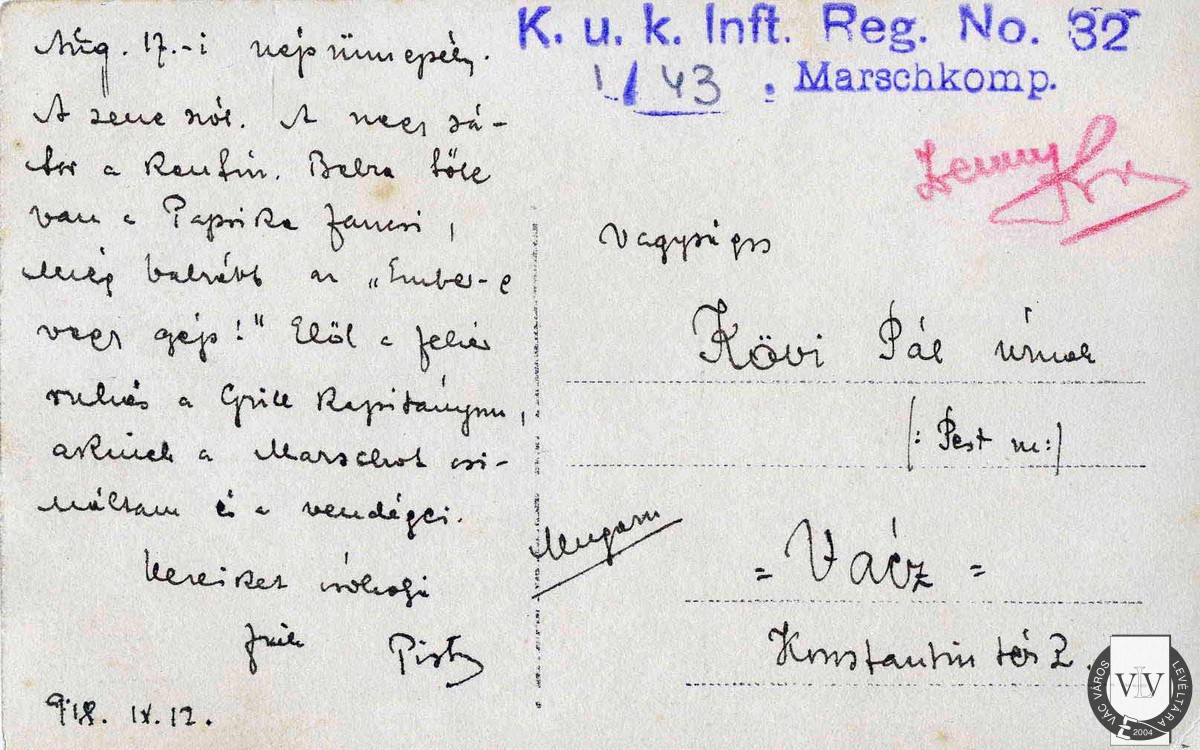 Aug. 17.-i népünnepély.
A zene szól. A nagy sá-
tor a Kantin. Balra tőle
van a Paprika Jancsi,
még balrább az „Ember-e
vagy gép!" Elöl a fehér
ruhás a Grill Kapitányom,
akinek a Marschot csi-
náltam és a vendégei.
Kezeiket csókolja
Pista
918. IX. 12.
K. u. k. Inft. Reg. No. 32
1/43. Marschkomp.
Nagyságos
Kövi Pál úrnak
(: Pest m:)
Ungarn
= Vácz =
Konstantin tér 2.
VÁC VÁROS LEVÉLTÁRA
VLV
2004